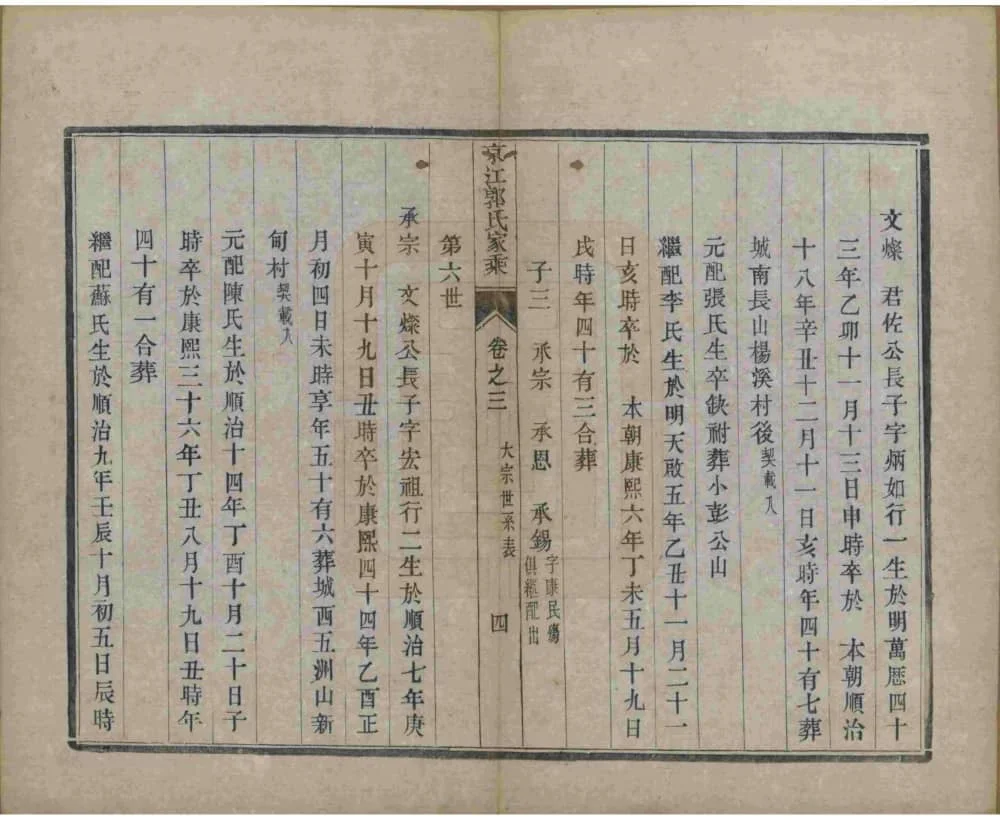 文燦　君佐公長子字炳如行一生於明萬歷四十
三年乙卯十一月十三日申時卒於　本朝順治
十八年辛丑十二月十一日亥時年四十有七葬
城南長山楊溪村後契載八
元配張氏生卒缺祔葬小彭公山
繼配李氏生於明天啟五年乙丑十一月二十一
日亥時卒於　本朝康熙六年丁未五月十九日
戌時年四十有三合葬
子三　承宗　承恩　承錫字康民殤俱繼配出
京江郭氏家乘　卷之三　大宗世系表　四
第六世
承宗　文燦公長子字宏祖行二生於順治七年庚
寅十月十九日丑時卒於康熙四十四年乙酉正
月初四日未時享年五十有六葬城西五洲山新
甸村契載八
元配陳氏生於順治十四年丁酉十月二十日子
時卒於康熙三十六年丁丑八月十九日丑時年
四十有一合葬
繼配蘇氏生於順治九年壬辰十月初五日辰時